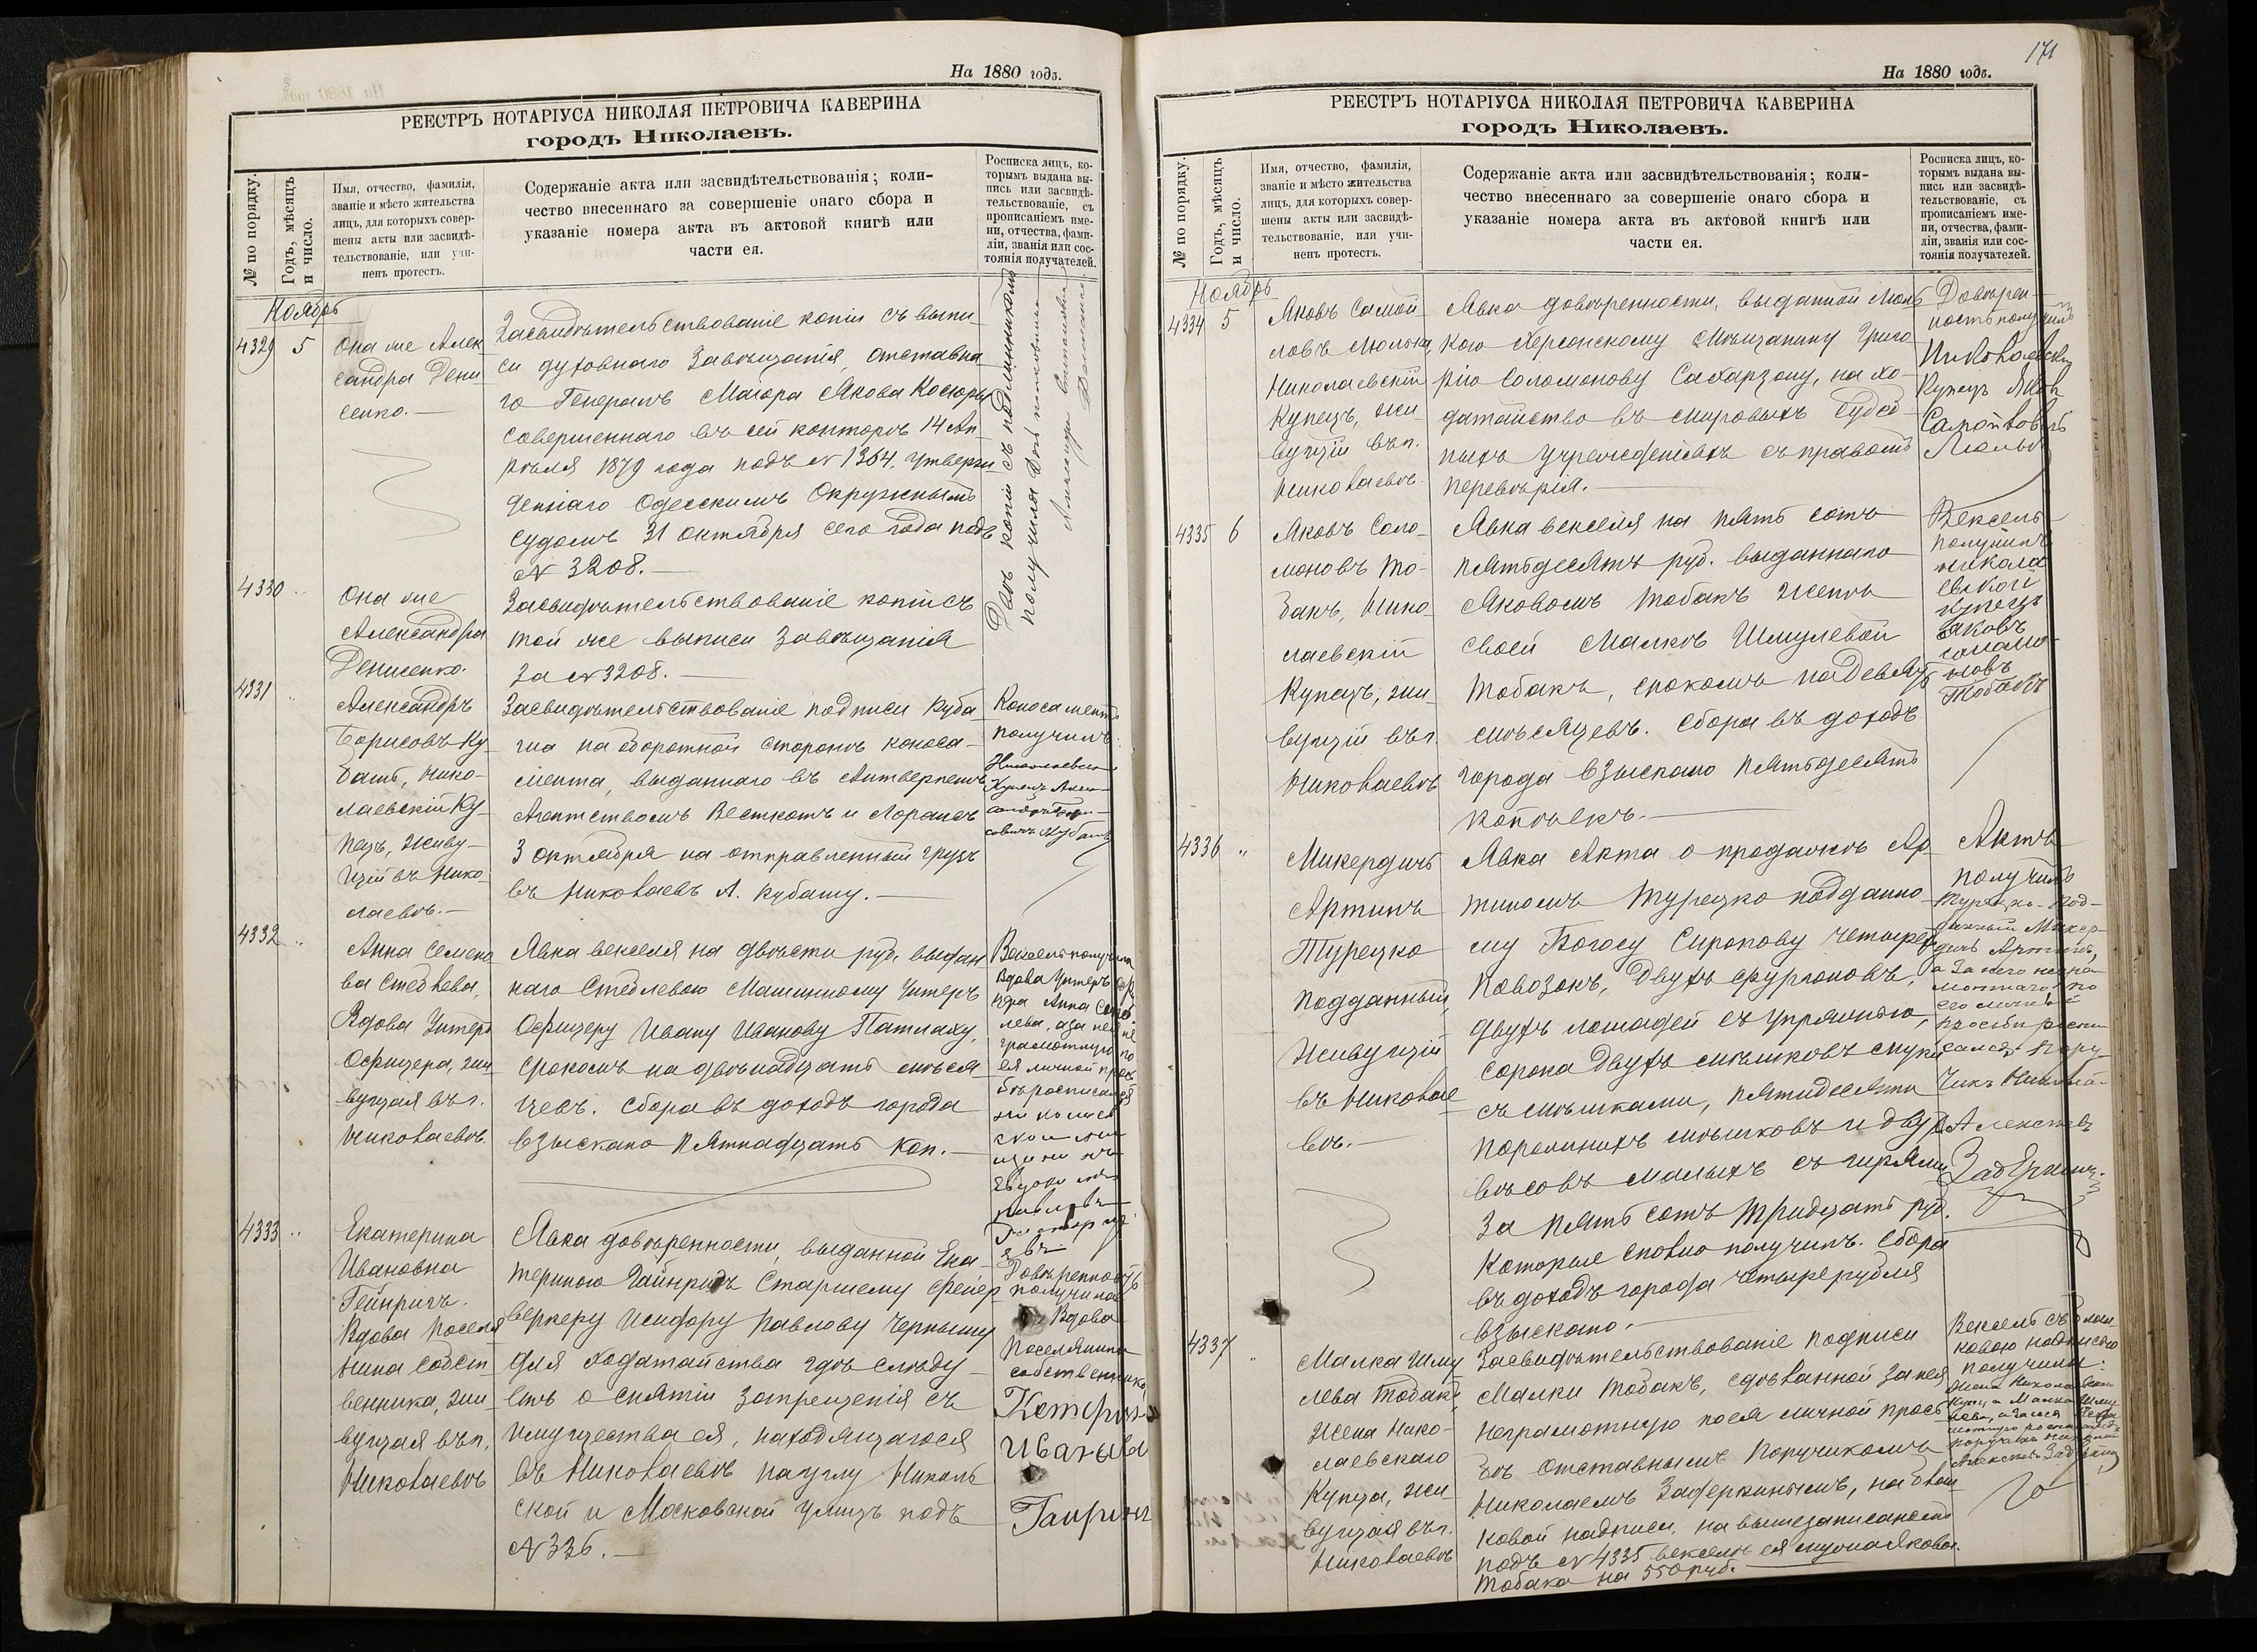 На 1880 годъ.
РЕЕСТРЪ НОТАРІУСА НИКОЛАЯ ПЕТРОВИЧА КАВЕРИНА
городъ Николаевъ.
№ по порядку.
Годъ, мѣсяцъ
и число.
Имя, отчество, фамилія,
званіе и мѣсто жительства
лицъ, для которыхъ совер-
шены акты или засвидѣ-
тельствованіе, или учи-
ненъ протестъ.
Содержаніе акта или засвидѣтельствованія; коли-
чество внесеннаго за совершеніе онаго сбора и
указаніе номера акта въ актовой книгѣ или
части ея.
Росписка лицъ, ко-
торымъ выдана вы-
пись или засвидѣ-
тельствованіе, съ
прописаніемъ име-
ни, отчества, фами-
ліи, званія или сос-
тоянія получателей.
Ноябрь
4329 5
Она же Алек
сандра Дени
сенко.—
Засвидѣтельствованіе копіи съ выпи-
си духовнаго Завѣщанія, отставна
го Генералъ Маіора Якова
совершеннаго въ сей конторѣ 14 Ап-
рѣля 1879 года подъ № 1364, утверж
деннаго Одесскимъ Окружнымъ
Судомъ 31 Октября сего года подъ
№ 3208.—
Двѣ копіи съ подлинникомъ
получила
4330 „
Она же
Александра
Денисенко.
Засвидѣтельствованіе копіи съ
той же выписи Завѣщанія
За № 3208.—
4331 „
Александръ
Борисовъ Ку-
башъ, Нико-
лаевскій Ку-
пецъ, живу-
щій въ Нико-
лаевѣ.—
Засвидѣтельствованіе подписи Куба-
ша на оборотной сторонѣ коноса-
мента, выданнаго въ Антверпенѣ
Агентствомъ Весткотъ и Лорансъ
3 Октября на отправленный грузъ
въ Николаевъ А. Кубашу.—
Коносаментъ
получилъ
Николаевскій
Купецъ Алек
сандръ Бори-
совичъ Кубашъ
4332 „
Анна Семено
ва Стеблева,
Вдова Унтеръ
Офицера, жи
вущая въ г.
Николаевѣ.
Явка векселя на двѣсти руб. выдан
наго Стеблевою Машинному Унтеръ
Офицеру Ивану Иванову Патлаху,
срокомъ на двѣнадцать мѣся-
цевъ. Сбора въ доходъ города
взыскано пятнадцать коп.—
Вексель получила
Вдова Унтеръ Оф
цера Анна Стеб-
лева, а за нея не
грамотную по
ея личной прось
бѣ росписался
4333 „
Екатерина
Ивановна
Гейнрихъ.
Вдова Поселя
нина собст-
венника, жи-
вущая въ г.
Николаевѣ
Явка довѣренности, выданной Ека-
териною Гайнрихъ Старшему Фейер
веркеру Исидору Павлову Чернышу
для ходатайства гдѣ слѣду-
етъ о снятіи запрещенія съ
имущества ея, находящагося
въ Николаевѣ на углу Николь
ской и Московской улицъ подъ
№ 336.—
Довѣренность
получила
Вдова
Поселянина
собственника
Ивановна
171
На 1880 годъ.
РЕЕСТРЪ НОТАРІУСА НИКОЛАЯ ПЕТРОВИЧА КАВЕРИНА
городъ Николаевъ.
№ по порядку.
Годъ, мѣсяцъ
и число.
Имя, отчество, фамилія,
званіе и мѣсто жительства
лицъ, для которыхъ совер-
шены акты или засвидѣ-
тельствованіе, или учи-
ненъ протестъ.
Содержаніе акта или засвидѣтельствованія; коли-
чество внесеннаго за совершеніе онаго сбора и
указаніе номера акта въ актовой книгѣ или
части ея.
Росписка лицъ, ко-
торымъ выдана вы-
пись или засвидѣ-
тельствованіе, съ
прописаніемъ име-
ни, отчества, фами-
ліи, званія или сос-
тоянія получателей.
Ноябрь
4334 5
Яковъ Самой
ловъ
Николаевскій
Купецъ, жи-
вущій въ г.
Николаевѣ.
Явка довѣренности, выданной
Херсонскому Мѣщанину Григо
рію Соломонову на хо-
датайство въ Мировыхъ Судеб-
ныхъ Учрежденіяхъ съ правомъ
перевѣрія.—
Довѣрен-
ность получилъ
Николаевскій
Купецъ Яковъ
Самойловъ
4335 6
Яковъ Соло-
моновъ То-
бакъ, Нико-
лаевскій
Купецъ, жи-
вущій въ г.
Николаевѣ
Явка векселя на пять сотъ
пятьдесятъ руб. выданнаго
Яковомъ Тобакъ женѣ
своей Малкѣ Шмулевой
Тобакъ, срокомъ на девять
мѣсяцевъ. Сбора въ доходъ
города взыскано пятьдесятъ
копѣекъ.—
Вексель
получилъ
никола
евской
купецъ
яковъ
соламо-
новъ
Тобакъ
4336 „
Микердичъ
Артинъ
Турецко
подданный,
живущій
въ Николае
вѣ.—
Явка Акта о продажѣ Ар
тиномъ Турецко подданно-
му Богосу Сиропову четырехъ
повозокъ, двухъ фургоновъ,
двухъ лошадей съ упряжью,
сорока двухъ мѣшковъ муки
съ мѣшками, пятидесяти
порожнихъ мѣшковъ и двухъ
вѣсовъ малыхъ съ гирями
За пять сотъ тридцать руб.
Которые сполна получилъ. Сбора
въ доходъ города четыре рубля
взыскано.—
Актъ
получилъ
Турецко-под-
данный Микер-
дичъ Артинъ,
а за него негра-
мотнаго по
его личной
просьбѣ роспи
сался Пору-
чикъ
4337 „
Малка Шму
лева Тобакъ,
жена Нико-
лаевскаго
Купца, жи-
вущая въ г.
Николаевѣ
Засвидѣтельствованіе подписи
Малки Тобакъ, сдѣланной за нея
неграмотную по ея личной прось
бѣ Отставнымъ Поручикомъ
Николаемъ Задеркинымъ, на блан
ковой надписи, на вышезаписаномъ
подъ № 4335 векселѣ ея мужа Якова
Тобака на 550 руб.—
Вексель съ блан
ковою надписью
получила:
жена Николаевскаго
Купца Малка Шму
лева, а за нея негра
мотную росписался
поручикъ